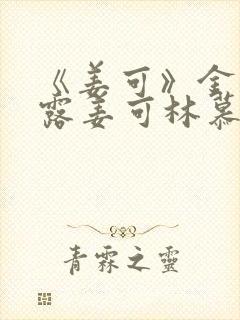 《姜可》全
露姜可林慕
青霖之靈